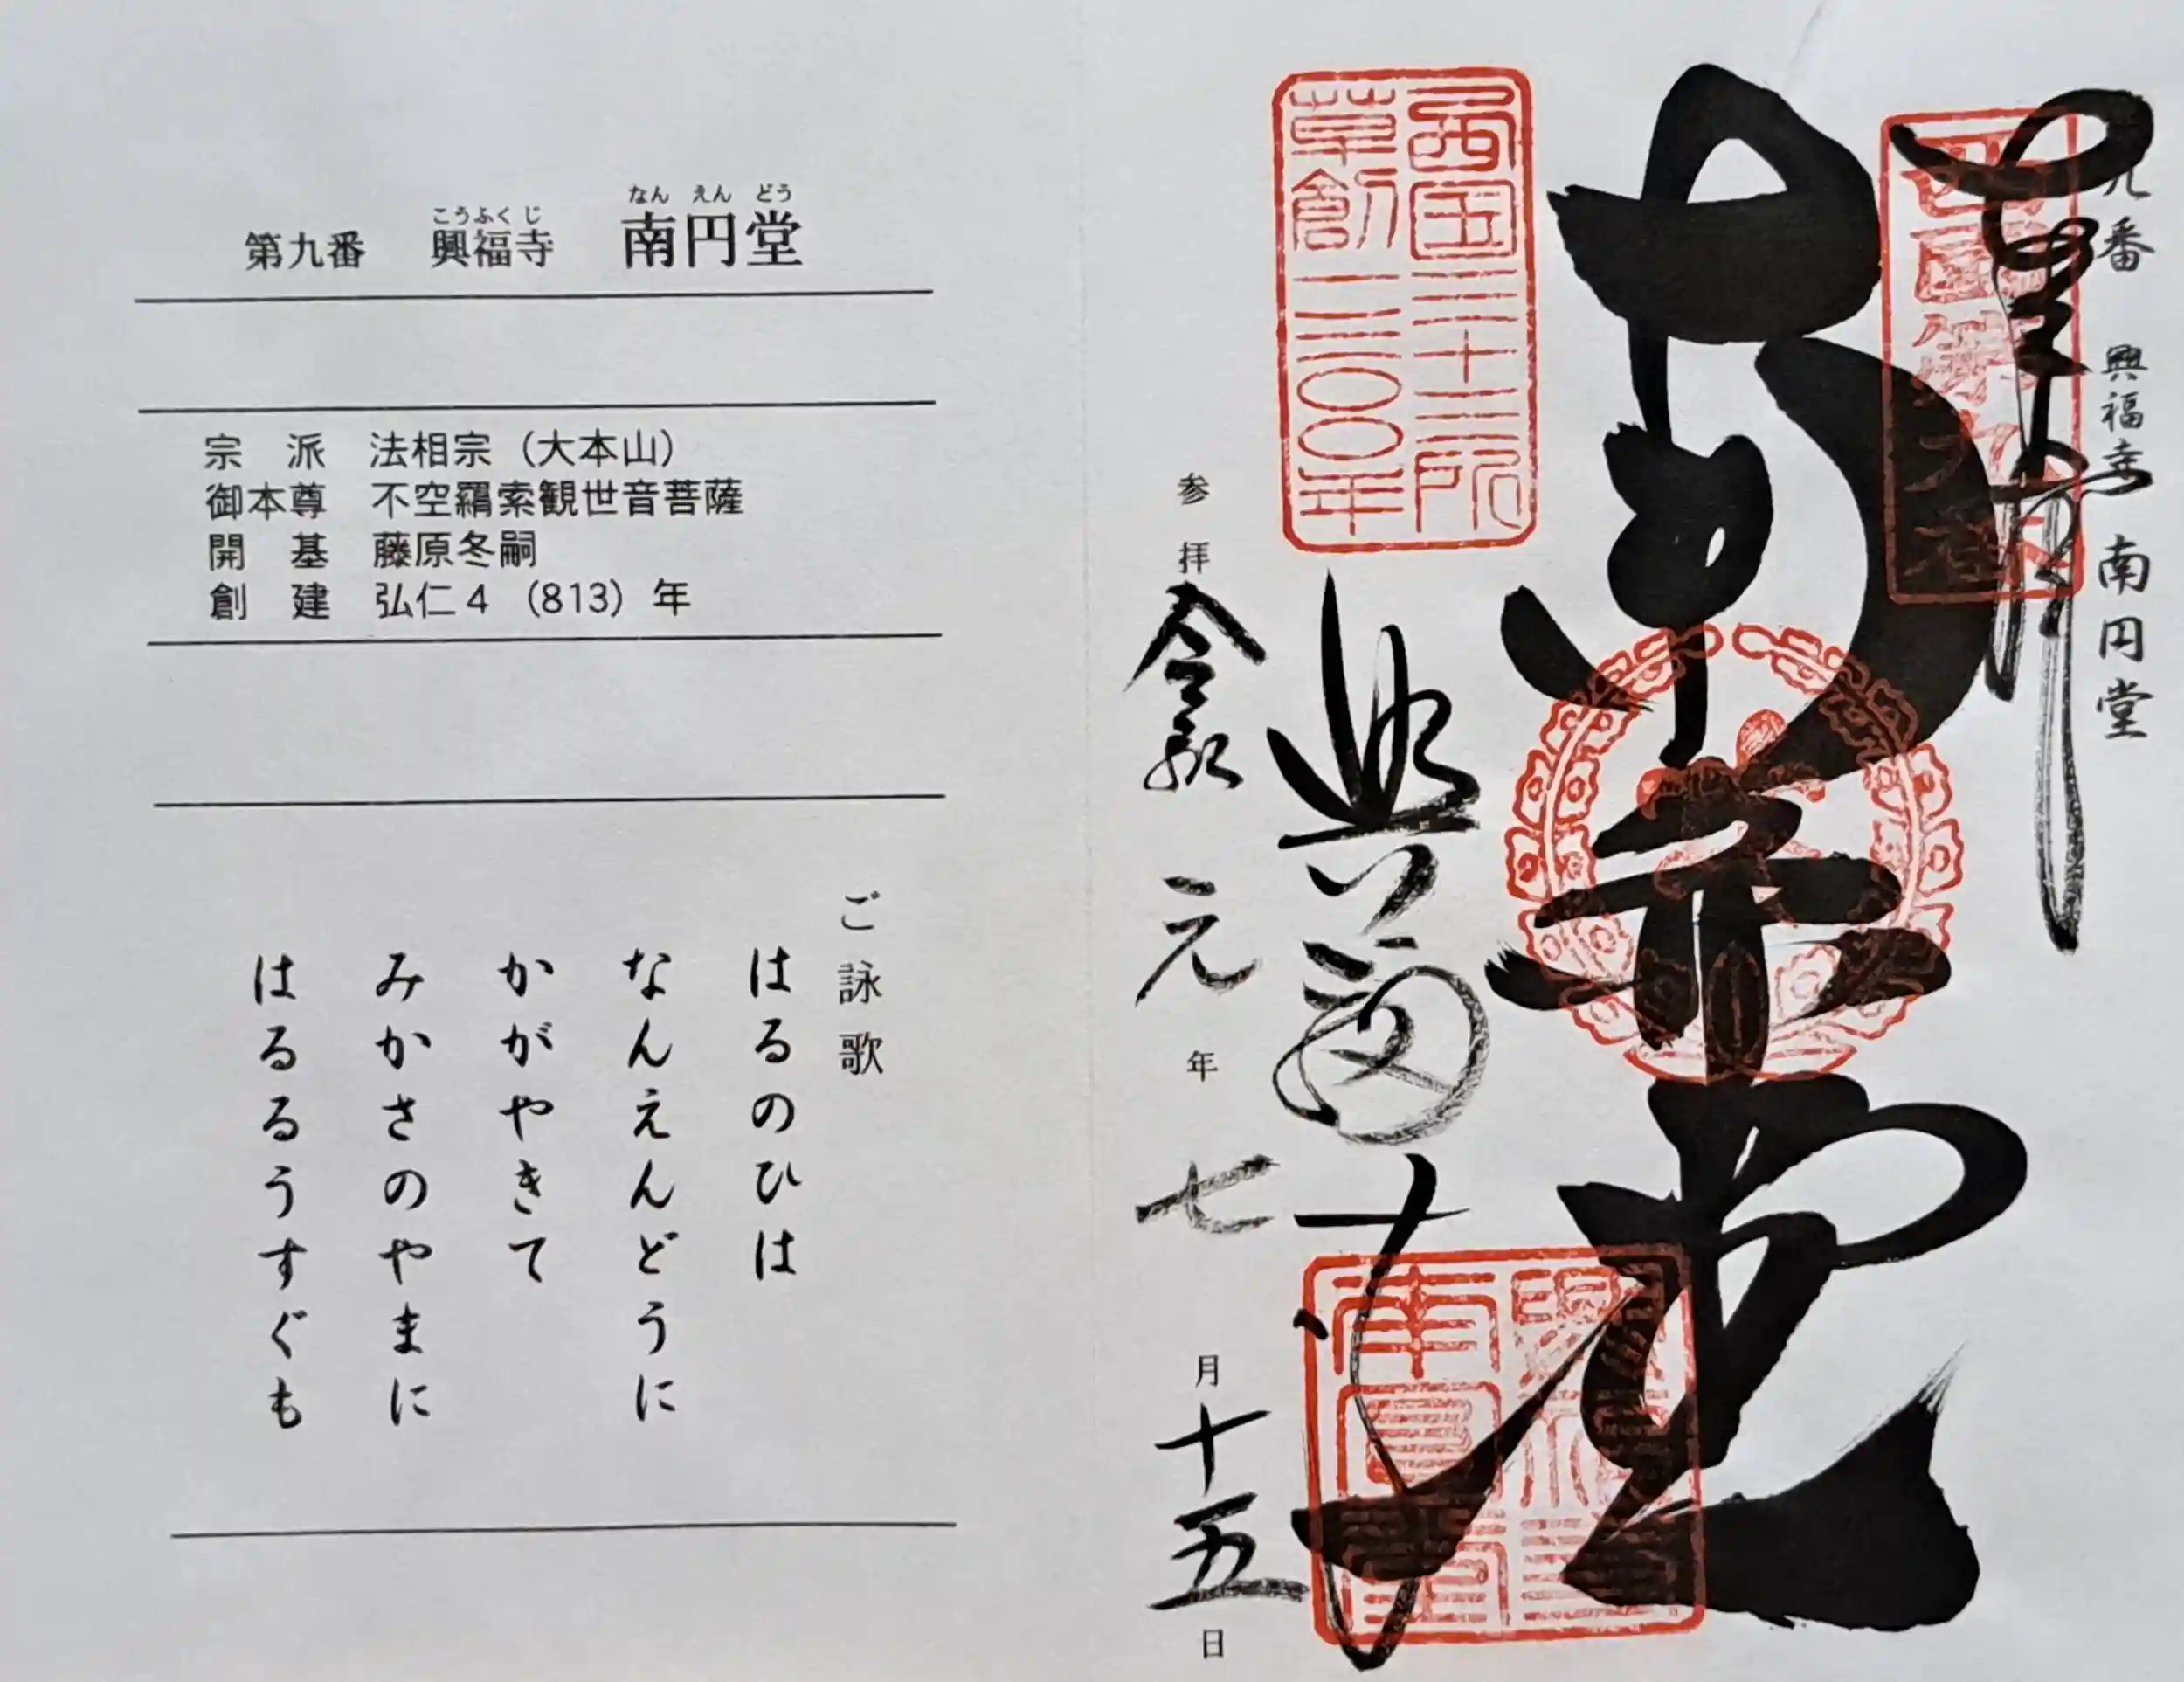 九番 興福寺 南円堂
奉拝
西国第九番
南円堂
西国三十三所
草創一三〇〇年
興福寺
参拝 令和元年七月十五日
第九番 興福寺 南円堂
こうふくじ なんえんどう
宗派 法相宗（大本山）
御本尊 不空羂索観世音菩薩
開基 藤原冬嗣
創建 弘仁4（813）年
ご詠歌
はるのひは
なんえんどうに
かがやきて
みかさのやまに
はるるうすぐも